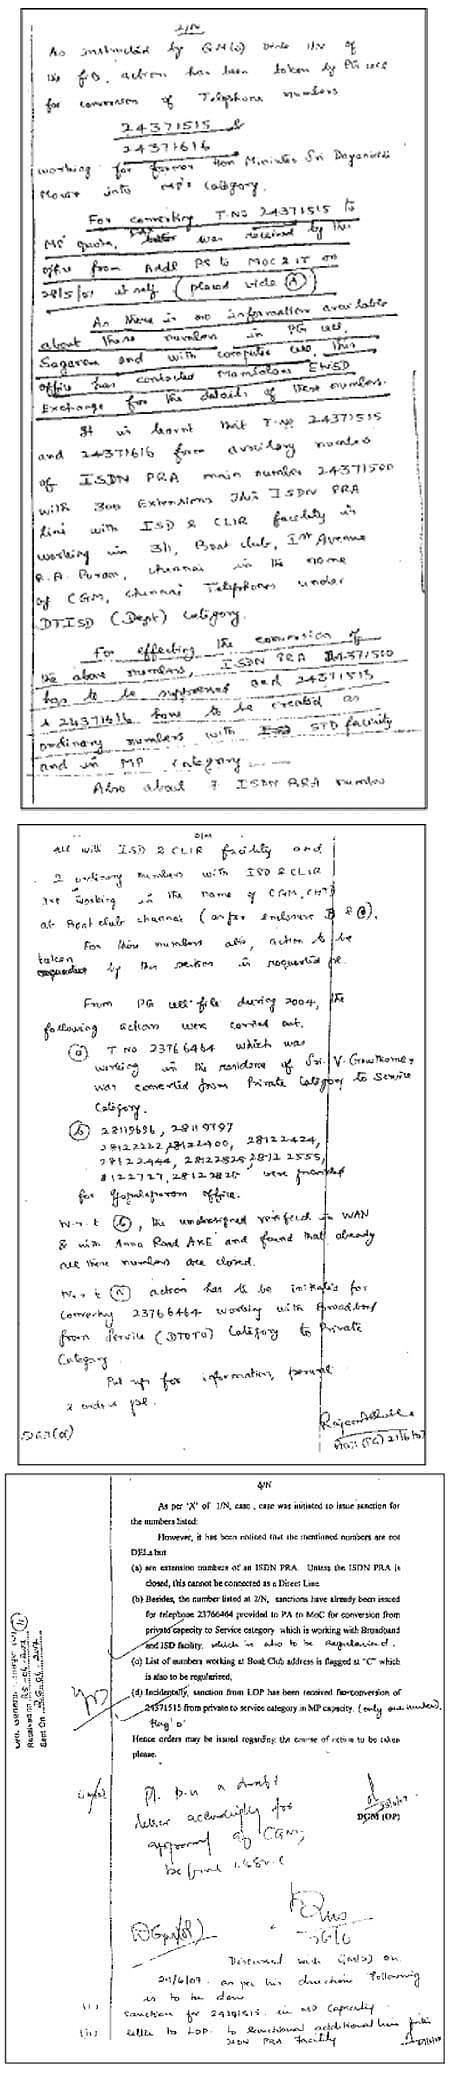 2/N
As instructed by GM(O) vide 1/N of
the f.B, action has been taken by PG cell
for conversion of Telephone numbers
24371515 &
24371616
working for former Hon Minister Sri Dayanidhi
Maran into MP's Category.
For converting T.NO 24371515 to
MP quota, was received by this
office from Addl PS to MOC & IT on
28/5/07 itself (placed vide A)
As there is no information available
about these numbers in PG cell,
Sagaram and with computer cell, this
office has contacted Mambalam EWSD
Exchange for the details of these numbers.
It is learnt that T.No 24371515
and 24371616 form auxiliary numbers
of ISDN PRA main number 24371500
with 300 Extensions This ISDN PRA
line with ISD & CLIR facility is
working in 3/1, Boat club, Ist Avenue
R.A. Puram, Chennai in the name
of CGM, Chennai Telephones under
DTISD (Dept) Category.
For effecting the conversion of
the above numbers, ISDN PRA 24371500
has to be suppressed and 24371515
& 24371616 have to be created as
ordinary numbers with STD facility
and in MP category
Also about 7 ISDN PRA number
all with ISD & CLIR facility and
2 ordinary numbers with ISD & CLIR
are working in the name of CGM, CHTD
at Boat club Chennai (as per enclosure B & C).
For these numbers also, action to be
taken by this section is requested pl.
From PG cell file during 2004, the
following action were carried out.
(a) T.NO 23766464 which was
working in the residence of Sri. V. Gowthaman
was converted from Private Category to Service
Category.
(b) 28119696, 28119797
28122222, 28122400, 28122424,
28122444, 28122525, 28122555,
28122727, 28122828, were provided
for Gopalapuram office.
W.r.t (b), the undersigned verified in WAN
& with Anna Road AXE and found that already
all these numbers are closed.
W.r.t (a) action has to be initiated for
converting 23766464 working with Broadband
from Service (DTOTO) Category to Private
Category.
Put up for information, perusal
& orders pl.
21/6/07
4/N
As per 'X' of 1/N, case , case was initiated to issue sanction for
the numbers listed:
However, it has been noticed that the mentioned numbers are not
DELs but
(a) are extension numbers of an ISDN PRA. Unless the ISDN PRA is
closed, this cannot be connected as a Direct Line
(b) Besides, the number listed at 2/N, sanctions have already been issued
for telephone 23766464 provided to PA to MoC for conversion from
private capacity to Service category which is working with Broadband
and ISD facility. which is also to be Regularised.
(c) List of numbers working at Boat Club address is flagged at "C" which
is also to be regularized,
(d) Incidentally, sanction from LOP has been received for conversion of
24371515 from private to service category in MP capacity. (only one number)
flag 'D'
Hence orders may be issued regarding the course of action to be taken
please.
DGM (OP)
Pl. put a draft
letter accordingly for
approval of CGM,
Discussed with GM(O) on
as per his direction following
is to be done
(i) sanction for 24371515 in MP Capacity
(ii) letter to LOP to sanction additional line
ISDN PRA Facility